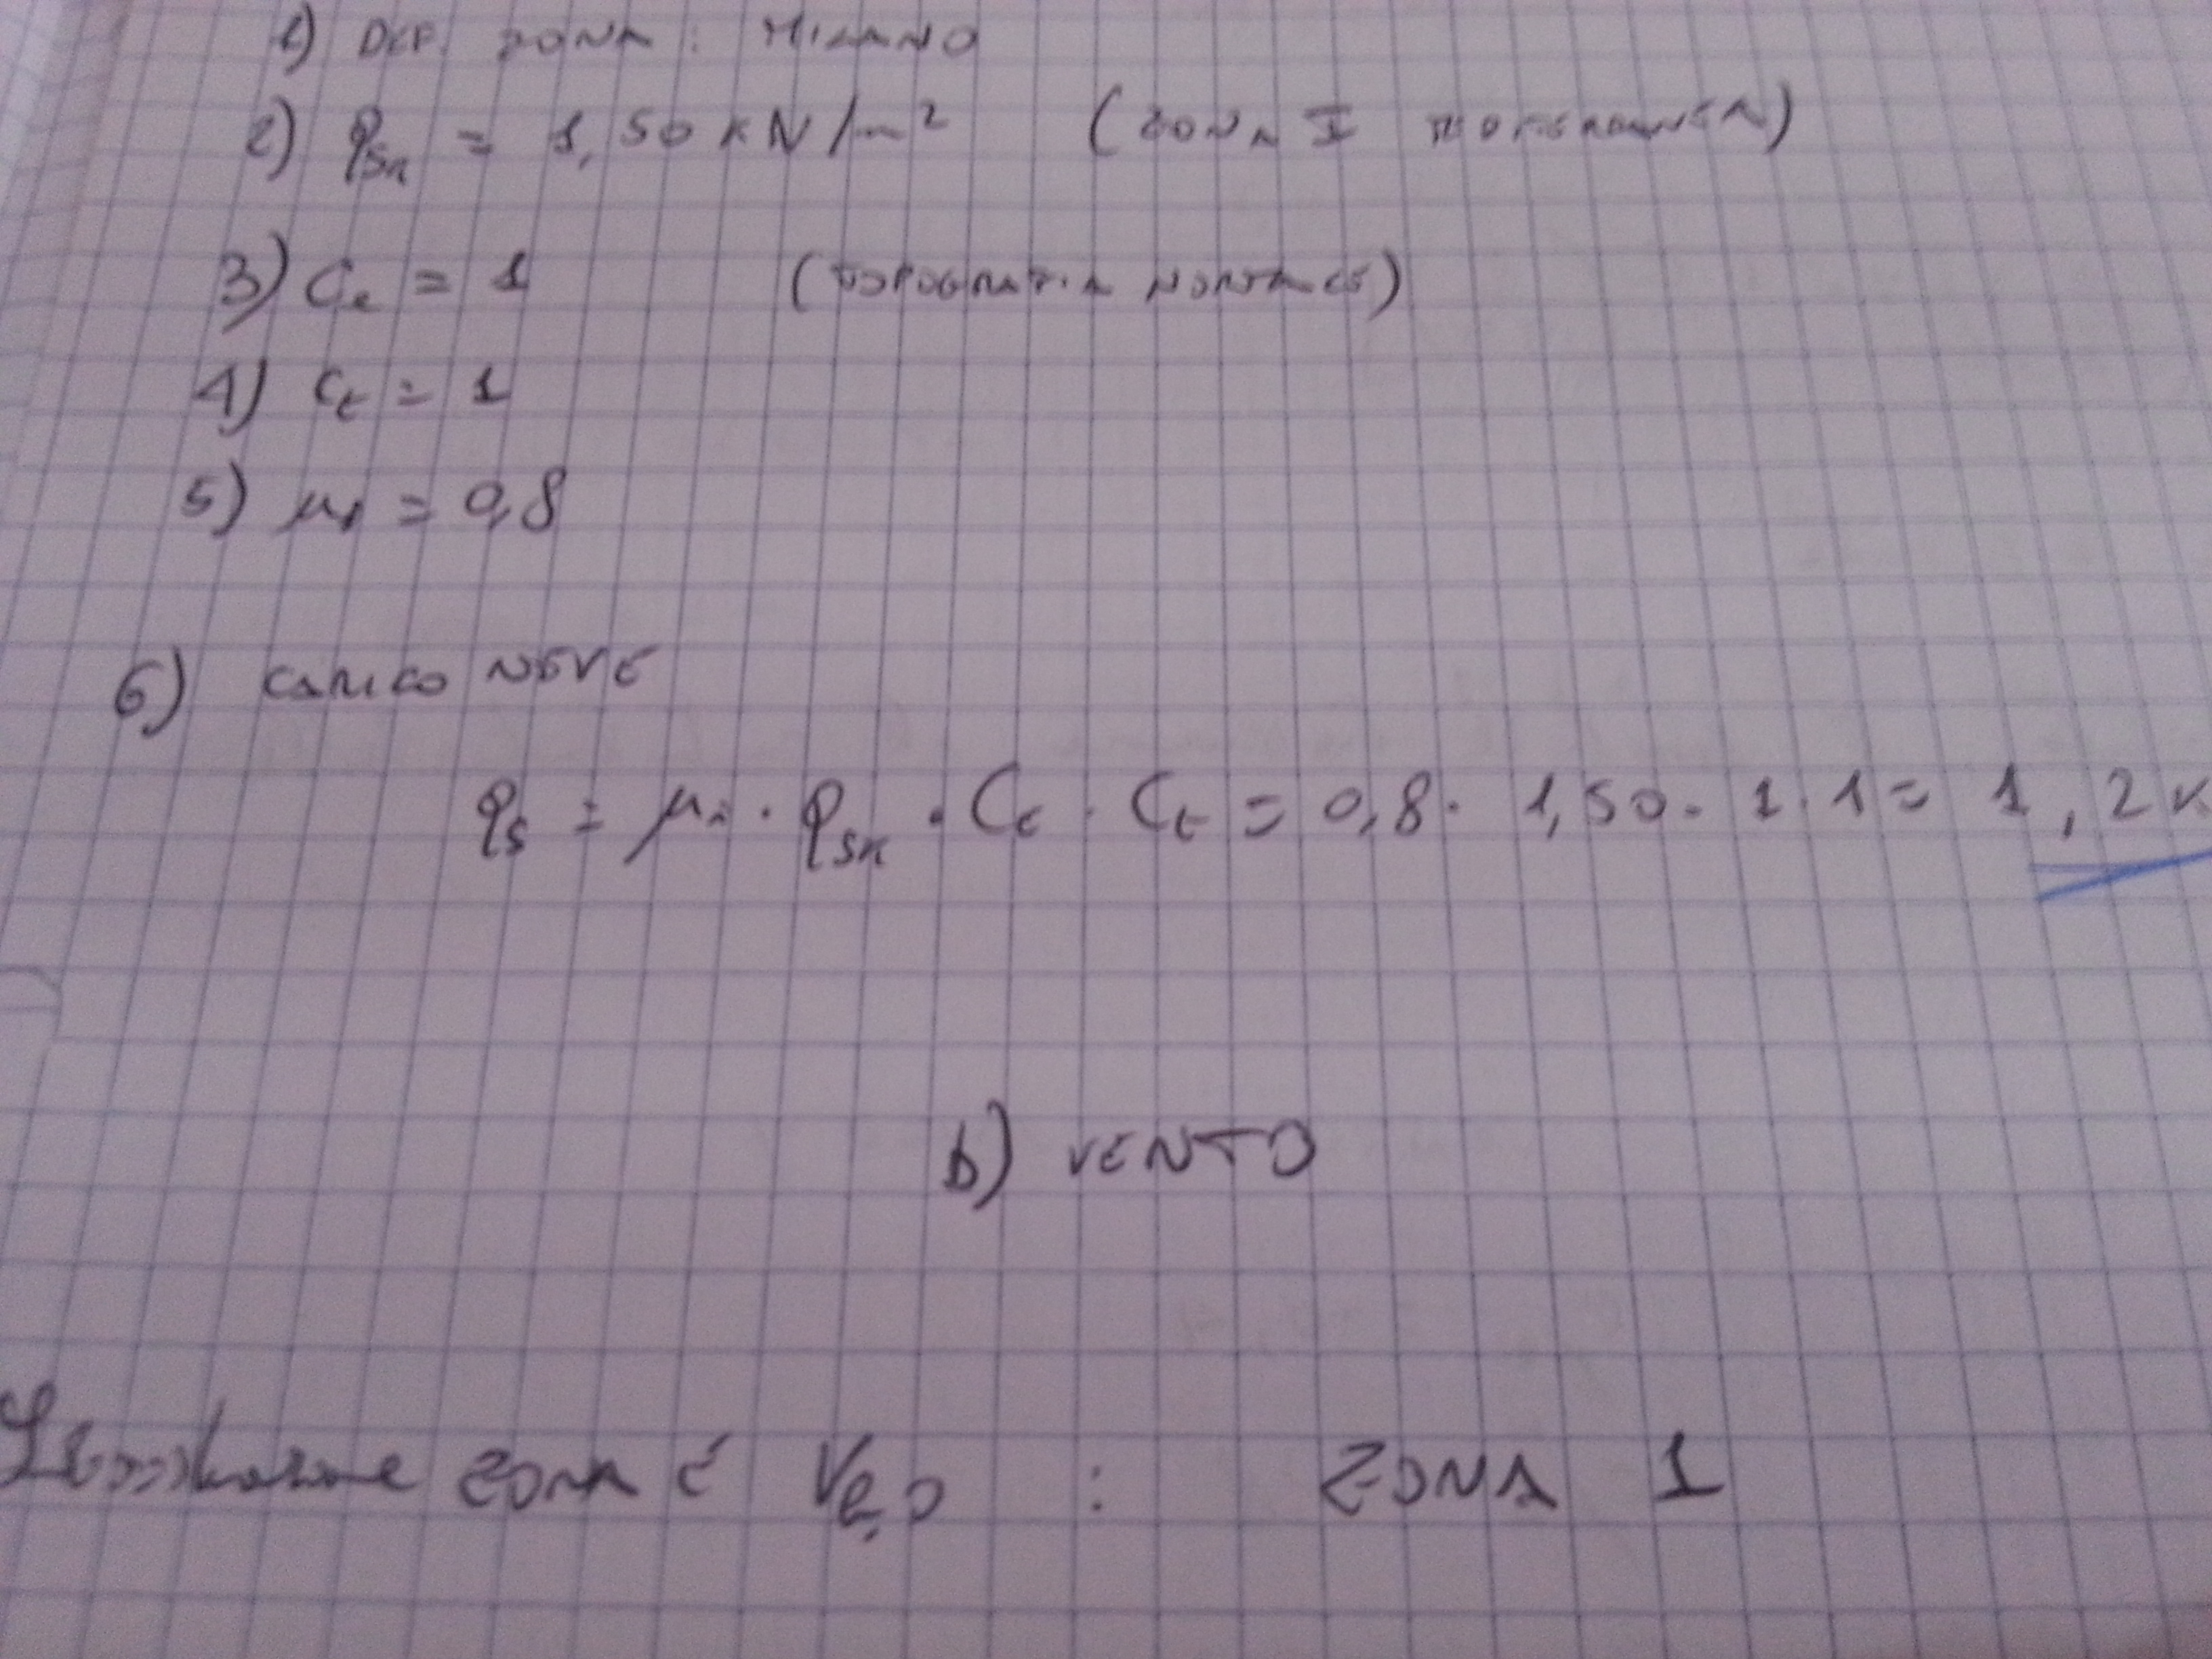 1) DEF. ZONA : MILANO
2) qsk = 1,50 kN/m² (ZONA I MEDITERRANEA)
3) Ce = 1 (TOPOGRAFIA NORMALE)
4) Ct = 1
5) μ1 = 0,8
6) CARICO NEVE
qs = μi · qsk · CE · Ct = 0,8 · 1,50 · 1 · 1 = 1,2 k
b) VENTO
ZONA E Vb,0 : ZONA 1